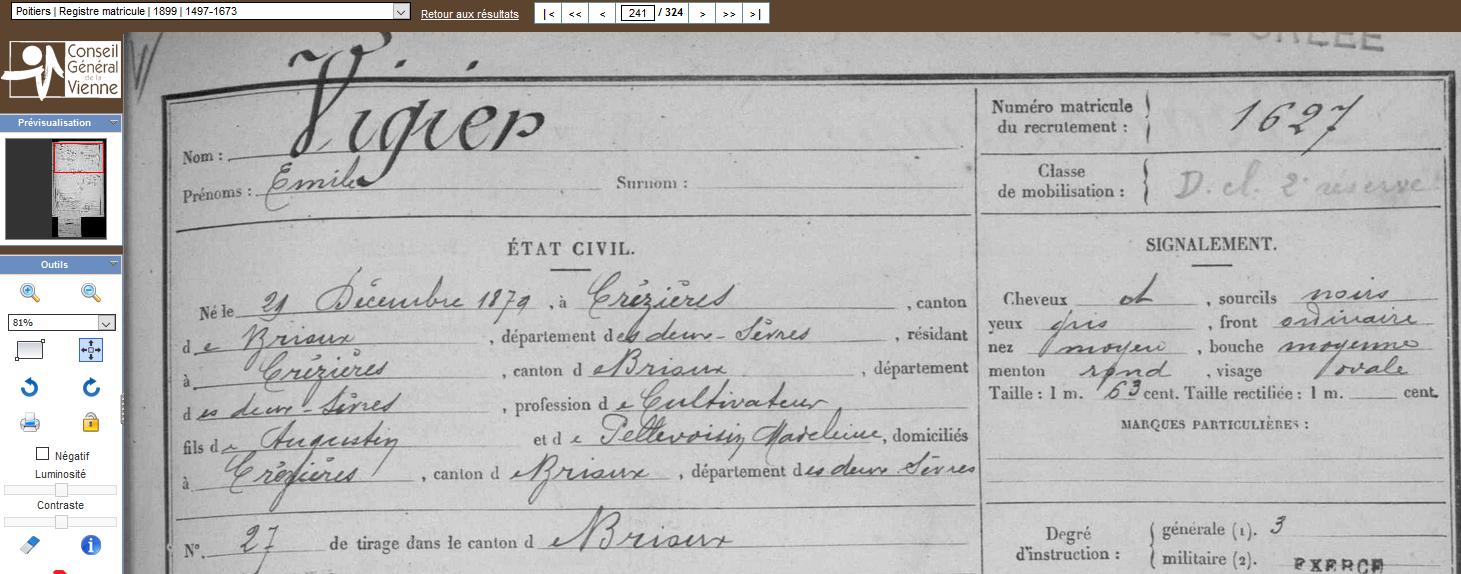 Poitiers | Registre matricule | 1899 | 1497-1673
Retour aux résultats
|< << < 241 / 324 > >> >|
Conseil
Général
de la
Vienne
Prévisualisation
Outils
81%
Négatif
Luminosité
Contraste
Nom : Vigier
Prénoms : Emile Surnom :
Numéro matricule
du recrutement : 1627
Classe
de mobilisation : D. cl. 2e réserve
ÉTAT CIVIL.
Né le 29 Décembre 1879, à Crézières, canton
de Brioux, département des deux-Sèvres, résidant
à Crézières, canton de Brioux, département
des deux-Sèvres, profession de Cultivateur
fils de Augustin et de Pellevoisin Madeleine, domiciliés
à Crézières, canton de Brioux, département des deux Sèvres
N°. 27 de tirage dans le canton de Brioux
SIGNALEMENT.
Cheveux et, sourcils noirs
yeux gris, front ordinaire
nez moyen, bouche moyenne
menton rond, visage ovale
Taille : 1 m. 63 cent. Taille rectifiée : 1 m. cent.
MARQUES PARTICULIÈRES :
Degré
d'instruction :
générale (1). 3
militaire (2). EXERCÉ